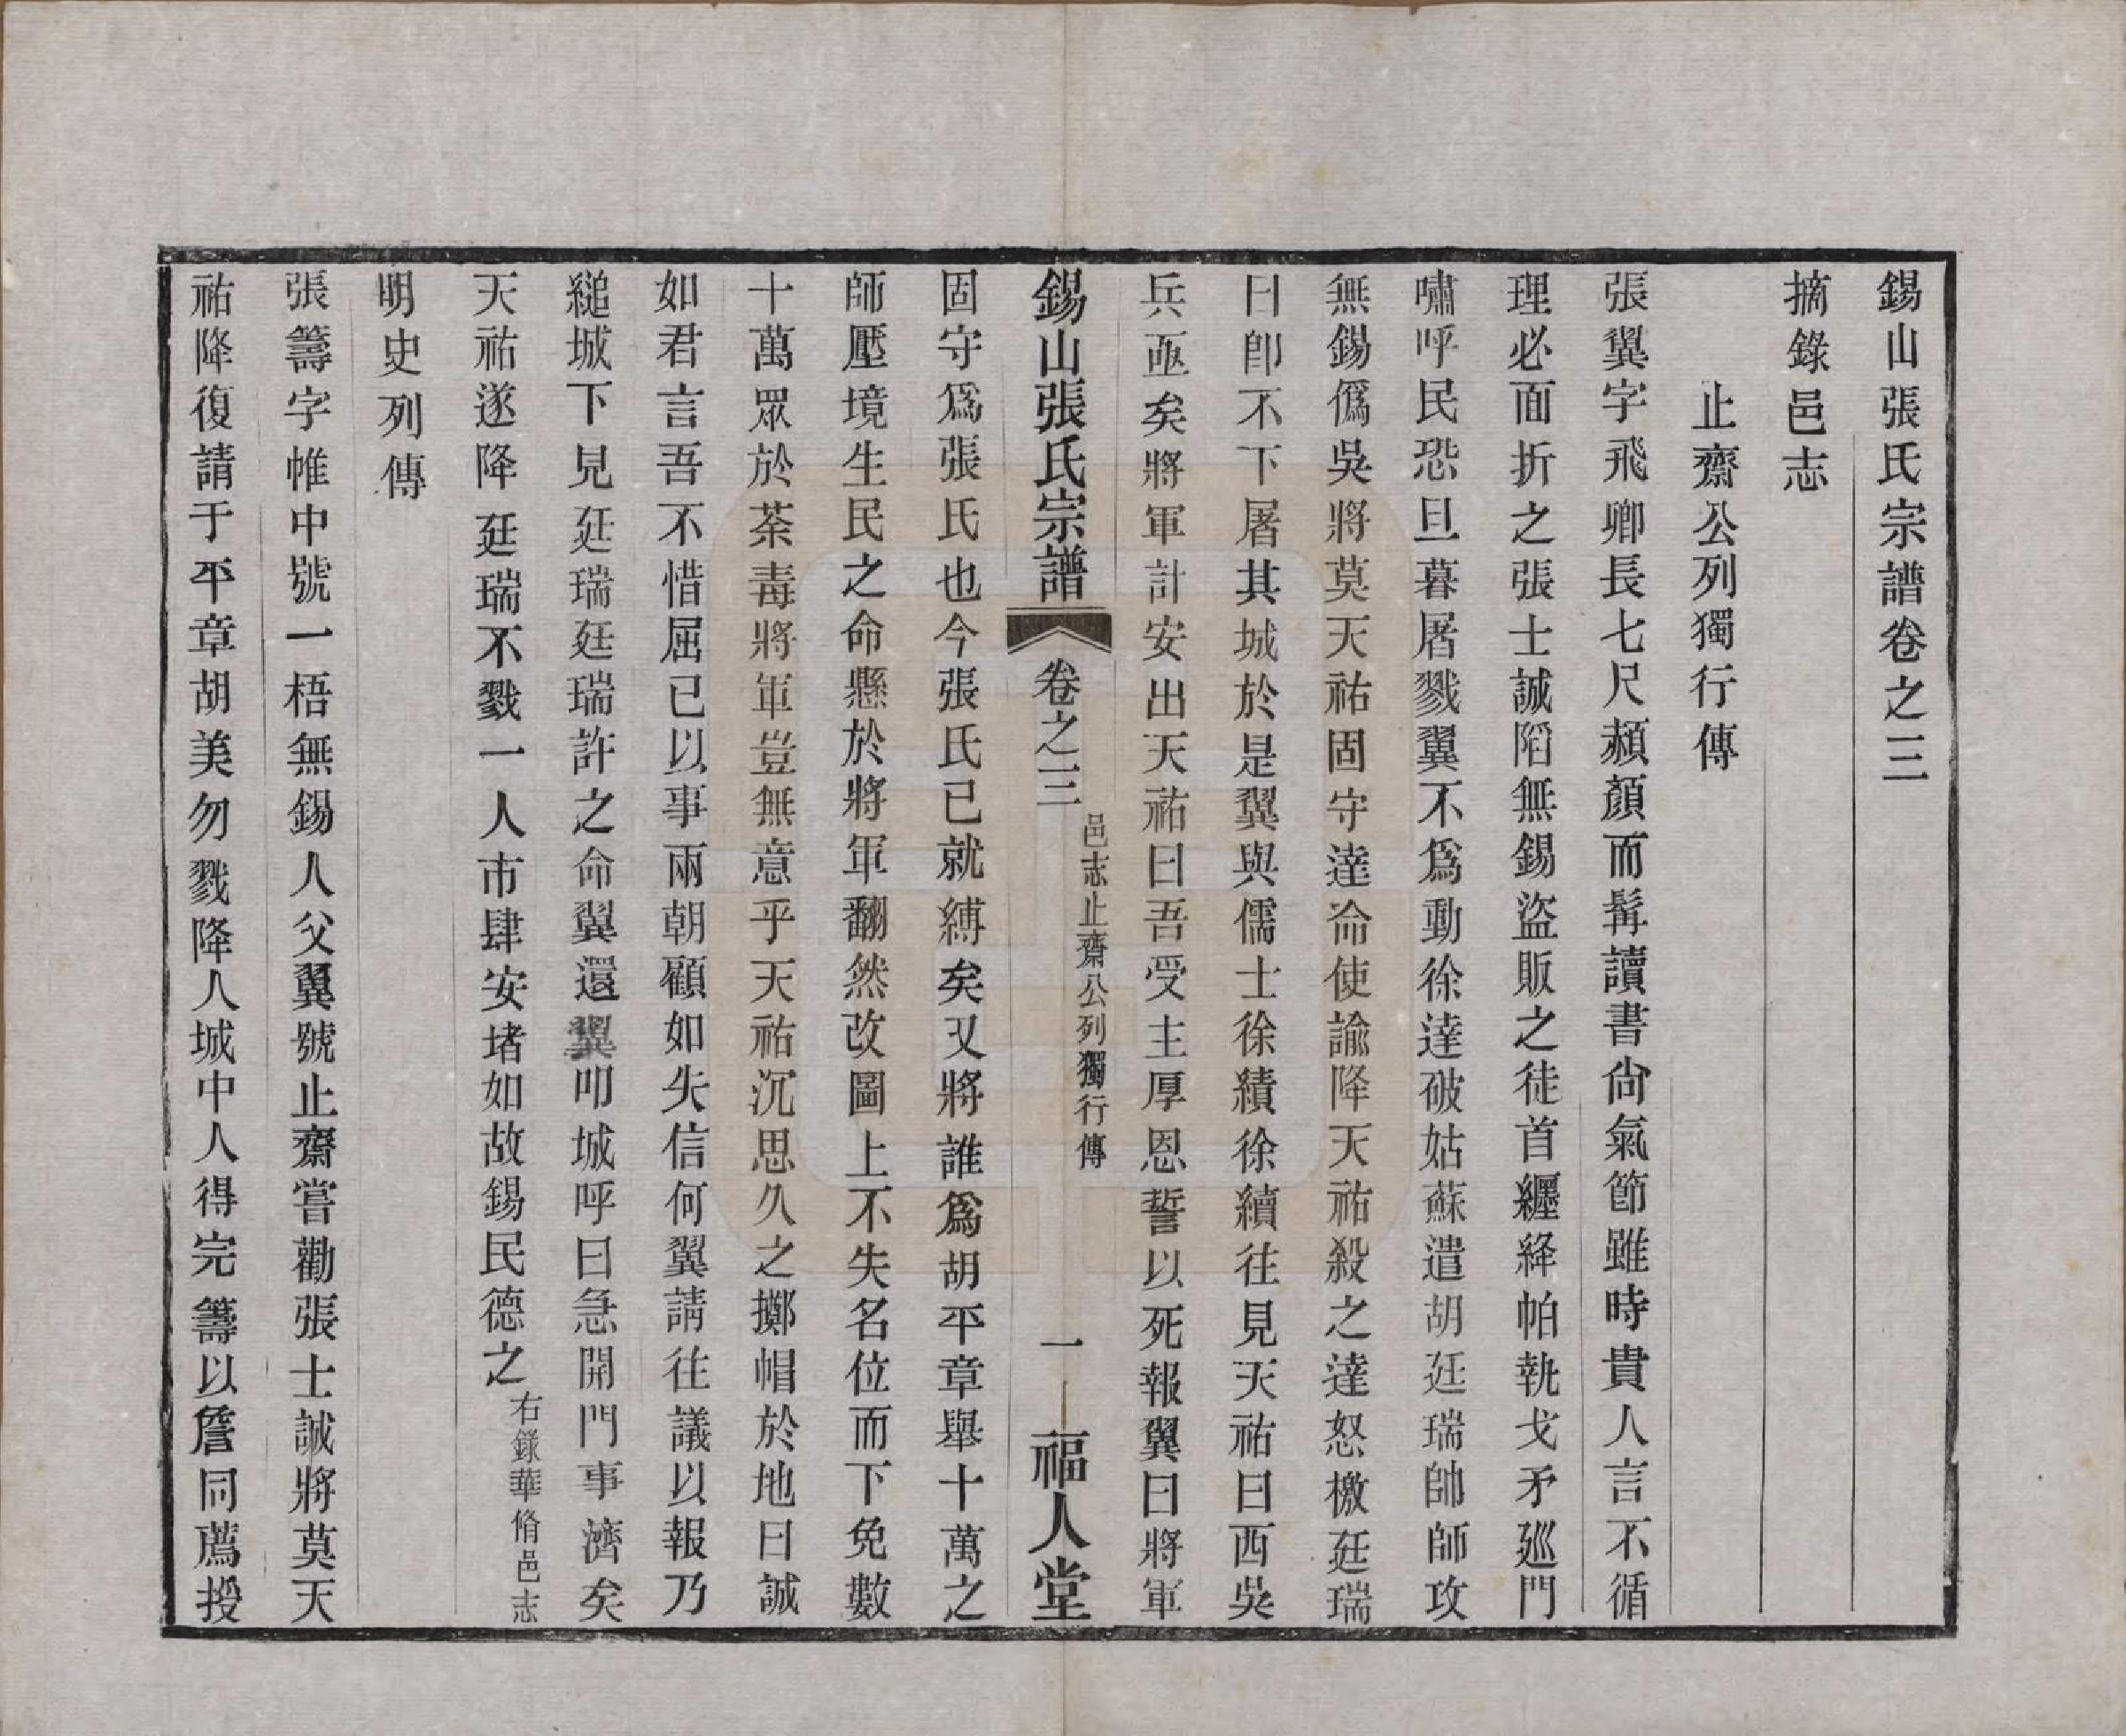 錫山張氏宗譜卷之三
摘錄邑志
止齋公列獨行傳
張翼字飛卿長七尺頳顏而髯讀書尙氣節雖時貴人言不循
理必面折之張士誠陷無錫盜販之徒首纒絳帕執戈矛廵門
嘯呼民恐旦暮屠戮翼不爲動徐達破姑蘇遣胡廷瑞帥師攻
無錫僞吳將莫天祐固守達命使諭降天祐殺之達怒檄廷瑞
曰卽不下屠其城於是翼與儒士徐績徐續往見天祐曰西吳
兵亟矣將軍計安出天祐曰吾受主厚恩誓以死報翼曰將軍
錫山張氏宗譜 卷之三 邑志止齋公列獨行傳 一 福人堂
固守爲張氏也今張氏已就縛矣又將誰爲胡平章舉十萬之
師壓境生民之命懸於將軍翻然改圖上不失名位而下免數
十萬眾於荼毒將軍豈無意乎天祐沉思久之擲帽於地曰誠
如君言吾不惜屈已以事兩朝顧如失信何翼請往議以報乃
縋城下見廷瑞廷瑞許之命翼還翼叩城呼曰急開門事濟矣
天祐遂降廷瑞不戮一人市肆安堵如故錫民德之右錄華脩邑志
明史列傳
張籌字帷中號一梧無錫人父翼號止齋嘗勸張士誠將莫天
祐降復請于平章胡美勿戮降人城中人得完籌以詹同薦授